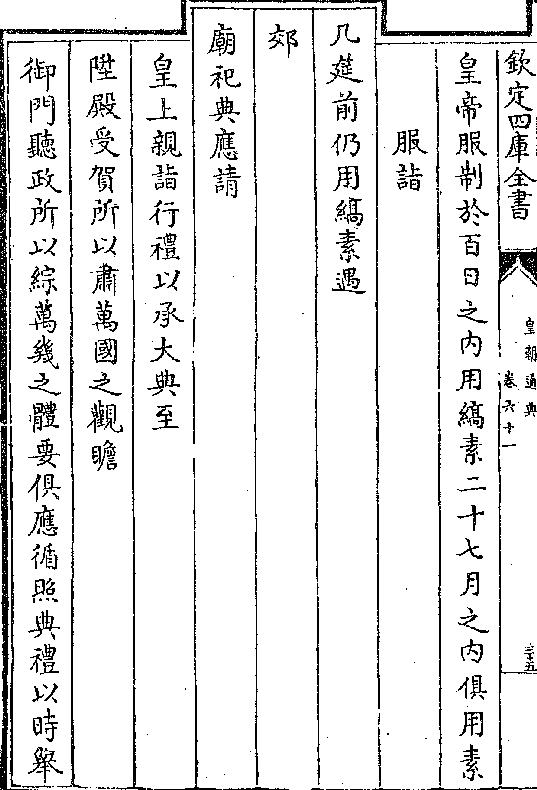 欽定四庫全書
皇朝通典
卷六十一
三十五
皇帝服制於百日之内用縞素二十七月之内俱用素
服詣
几筵前仍用縞素遇
郊
廟祀典應請
皇上親詣行禮以承大典至
陞殿受賀所以肅萬國之觀瞻
御門聽政所以綜萬幾之體要俱應循照典禮以時舉